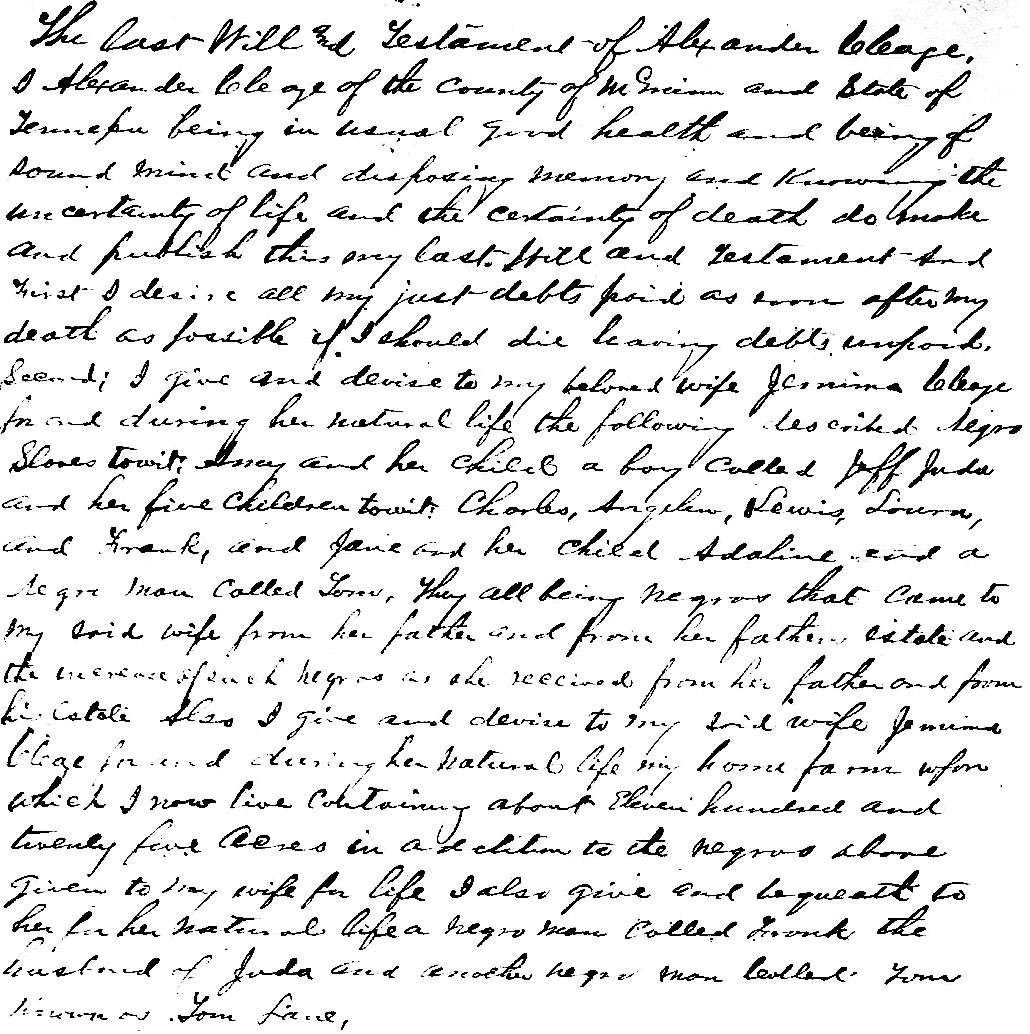 The last Will and Testament of Alexander Cleage.
I Alexander Cleage of the County of McMinn and State of
Tennessee being in usual good health and being of
sound mind and disposing memory and Knowing the
uncertainty of life and the certainty of death do make
and publish this my last Will and Testament And
First I desire all my just debts paid as soon after my
death as possible if I should die leaving debts unpaid.
Second; I give and devise to my beloved wife Jemima Cleage
for and during her natural life the following described Negro
Slaves towit: Amy and her child a boy called Jeff Juda
and her five children towit: Charles, Angeline, Lewis, Laura,
and Frank, and Jane and her child Adaline and a
Negro man called Tom, They all being negros that came to
my said wife from her father and from her fathers estate and
the increase of such negros as she received from her father and from
his estate Also I give and devise to my said wife Jemima
Cleage for and during her natural life my home farm upon
which I now live containing about Eleven hundred and
twenty five acres in addition to the negros above
given to my wife for life I also give and bequeath to
her for her natural life a negro man called Frank the
husband of Juda and another negro man called Tom
known as Tom Lane,